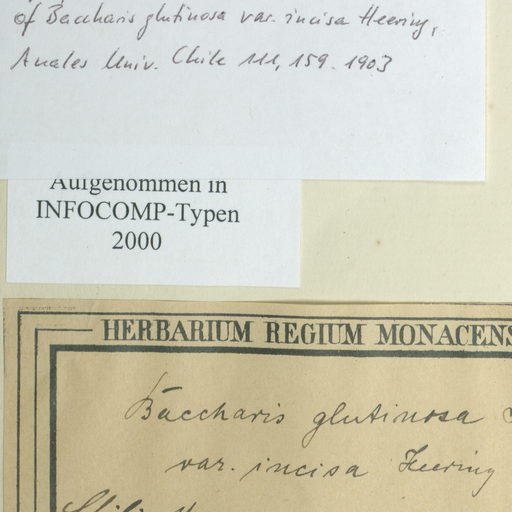 of Baccharis glutinosa var. incisa Heering,
Anales Univ. Chile 111, 159. 1903
Aufgenommen in
INFOCOMP-Typen
2000
HERBARIUM REGIUM MONACENS
Baccharis glutinosa
var. incisa Heering